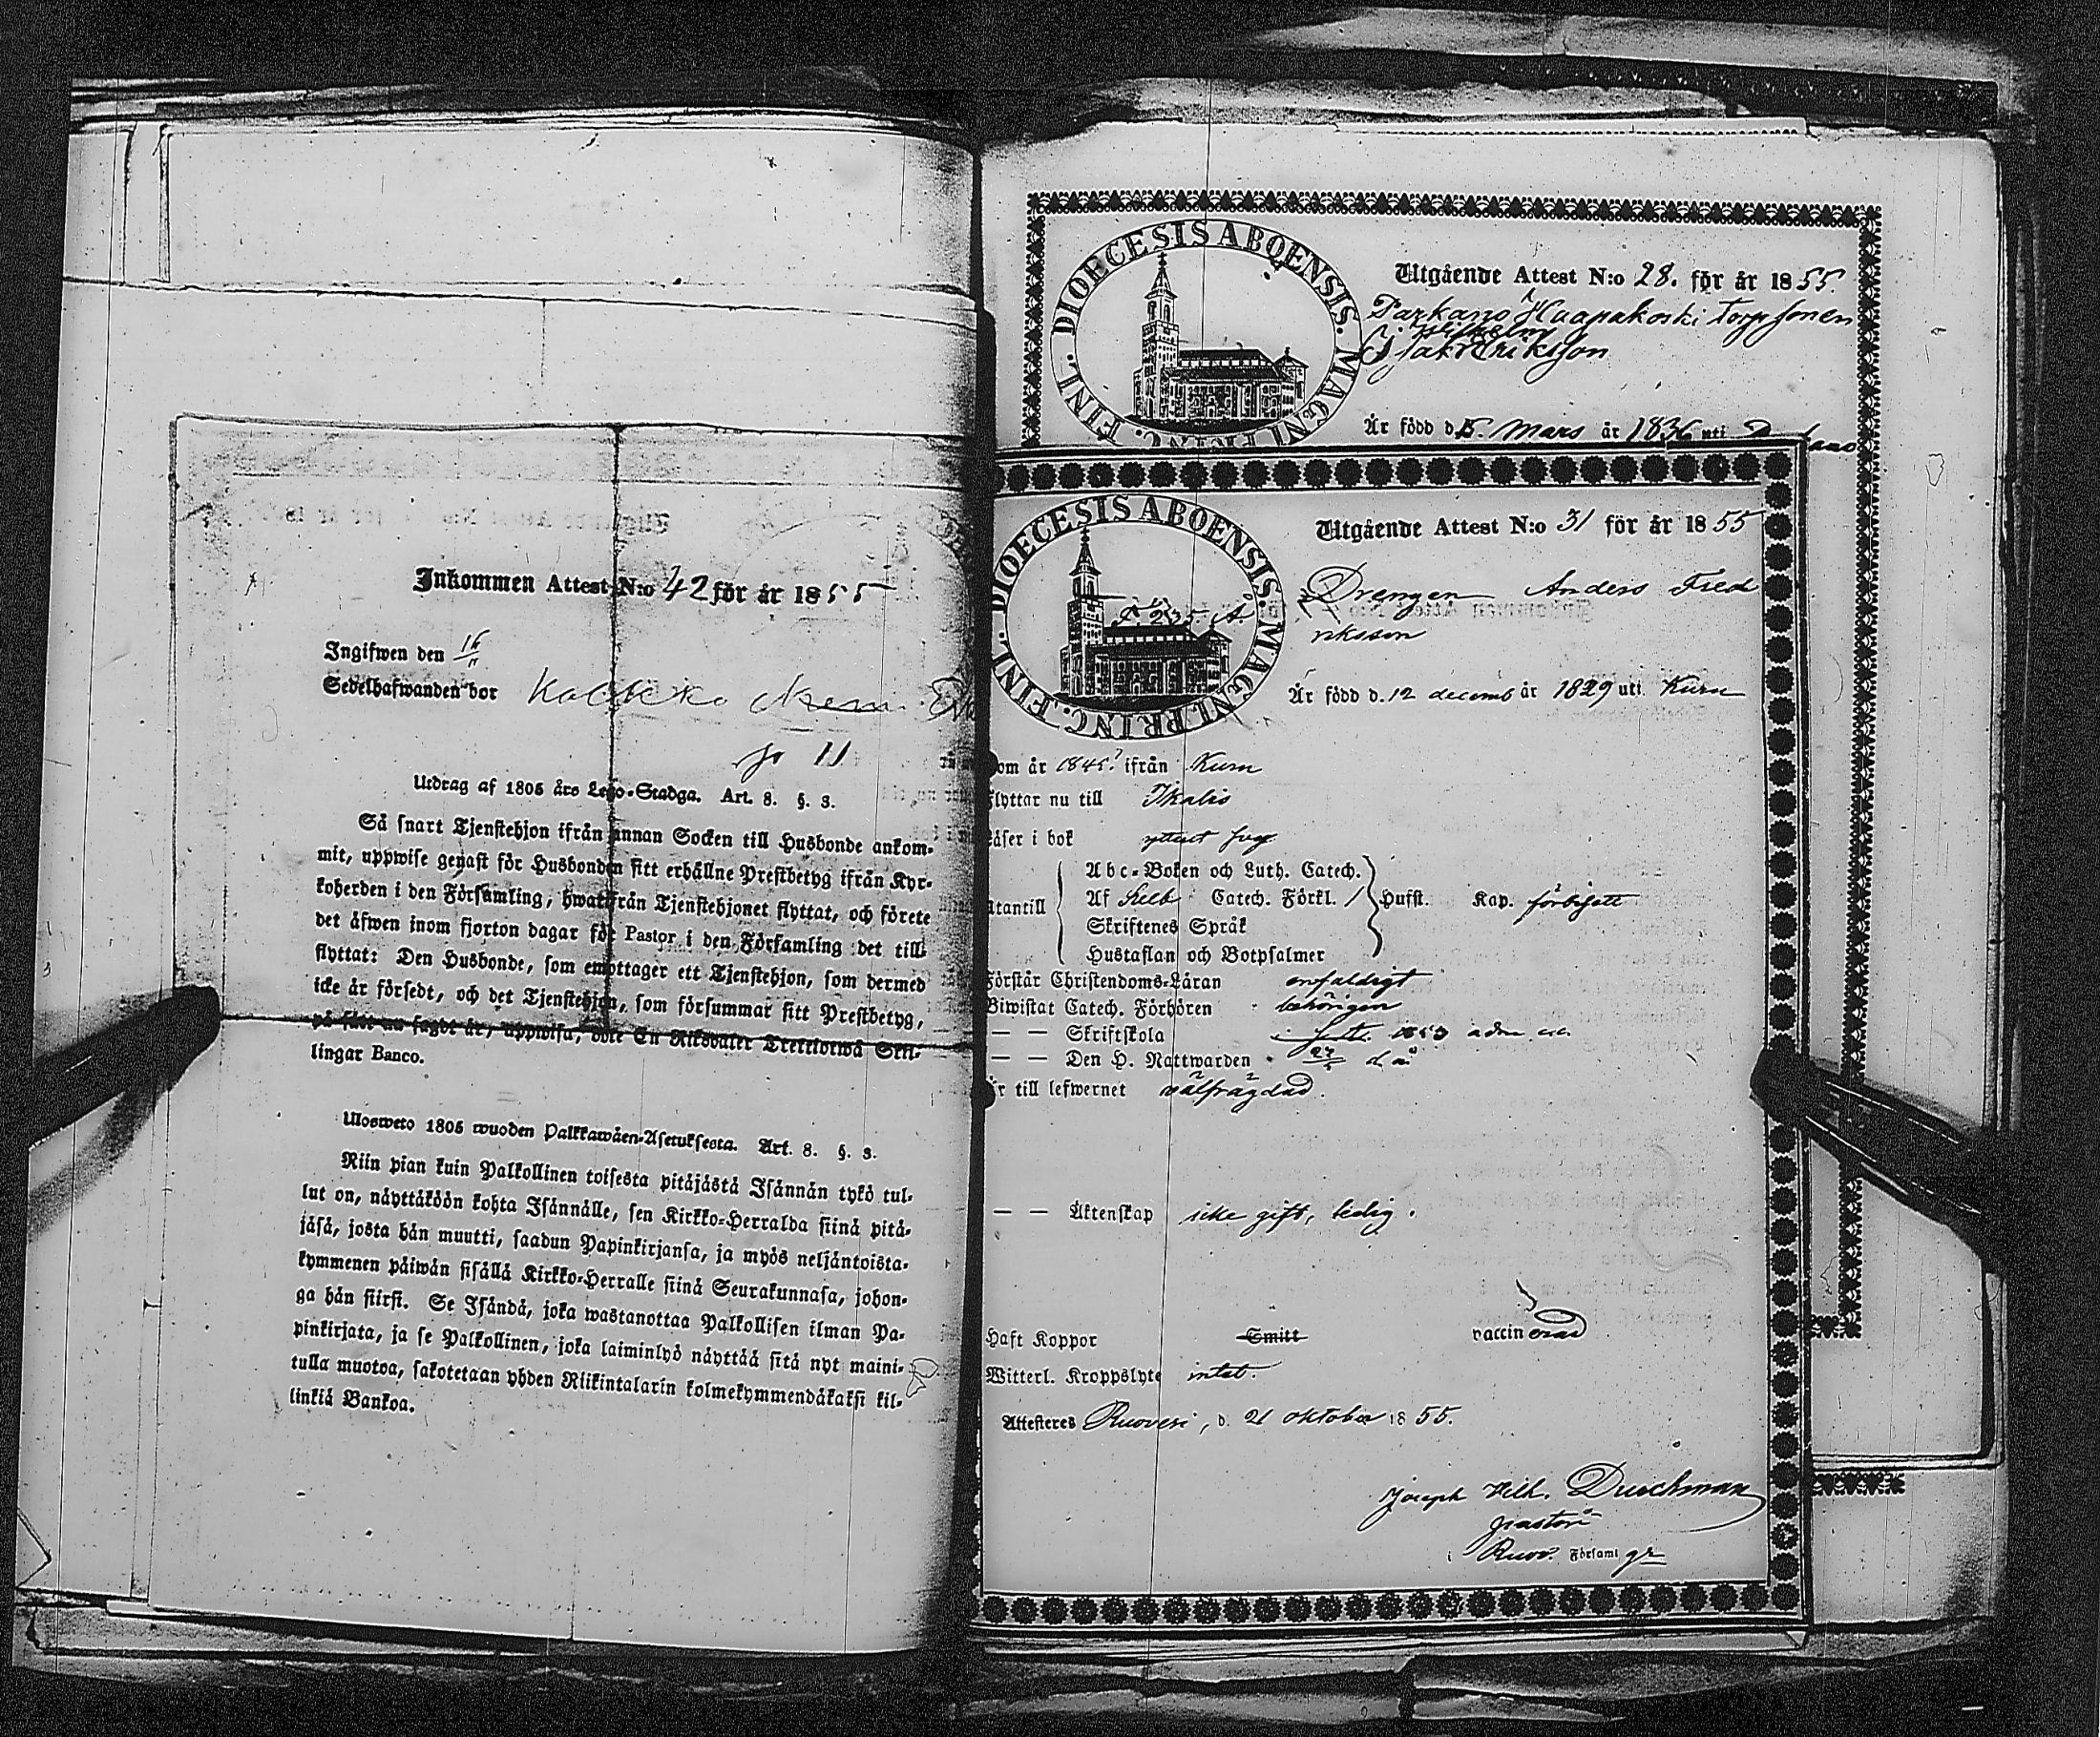 Inkommen Attest N:o 42 för år 1855
Ingifwen den 16/11
Sedelhafwanden bor
Utdrag af 1805 års Lego-Stadga. Art. 8. §. 3.
Så snart Tjenstehjon ifrån annan Socken till Husbonde ankom-
mit, uppwise genast för Husbonden sitt erhållne Prestbetyg ifrån Kyr-
koherden i den Församling, hwarifrån Tjenstehjonet flyttat, och förete
det äfwen inom fjorton dagar för Pastor i den Församling det till-
flyttat: Den Husbonde, som emottager ett Tjenstehjon, som dermed
icke är försedt, och det Tjenstehjon, som försummar sitt Prestbetyg,
på sätt nu sagdt är, uppwisa, böte En Riksdaler Trettiotwå Skil-
lingar Banco.
Ulosweto 1805 wuoden Palkkawäen-Asetuksesta. Art. 8. §. 3.
Niin pian kuin Palkollinen toisesta pitäjästä Isännän tykö tul-
lut on, näyttäköön kohta Isännälle, sen Kirkko-Herralda siinä pitä-
jäsä, josta hän muutti, saadun Papinkirjansa, ja myös neljäntoista-
kymmenen päiwän sisällä Kirkko-Herralle siinä Seurakunnasa, johon-
ga hän siirsi. Se Isändä, joka wastanottaa Palkollisen ilman Pa-
pinkirjata, ja se Palkollinen, joka laiminlyö näyttää sitä nyt maini-
tulla muotoa, sakotetaan yhden Riikintalarin kolmekymmendäkaksi kil-
linkiä Bankoa.
DIOECESIS ABOENSIS. MAGNI PRINC. FINL.
Utgående Attest N:o 28. för år 1855.
Parkano Haapakoski torp sonen
Wilhelm
Isak Eriksson
Är född d. 5. Mars år 1836 uti
DIOECESIS ABOENSIS. MAGNI PRINC. FINL.
Utgående Attest N:o 31 för år 1855
Drengen Anders Fred
riksson
Är född d. 12 decemb år 1829 uti Kuru
om år ifrån Kuru
flyttar nu till Ikalis
äser i bok
Abc-Boken och Luth. Catech.
utantill Af Catech. Förkl. Hufst. Kap. förbigått
Skriftenes Språk
Hustaflan och Botpsalmer
Förstår Christendoms-Läran enfaldigt
Biwistat Catech. Förhören behörigen
— — Skriftskola
— — Den H. Nattwarden
r till lefwernet välfrägdad.
— — Äktenskap icke gift, ledig.
Haft Koppor Smitt vaccinerad
Witterl. Kroppslyte intet.
Attesteres Ruovesi, d. 21 oktober 1855.
Joseph Wilh. Durchman
pastor
i Ruov. Församl gr